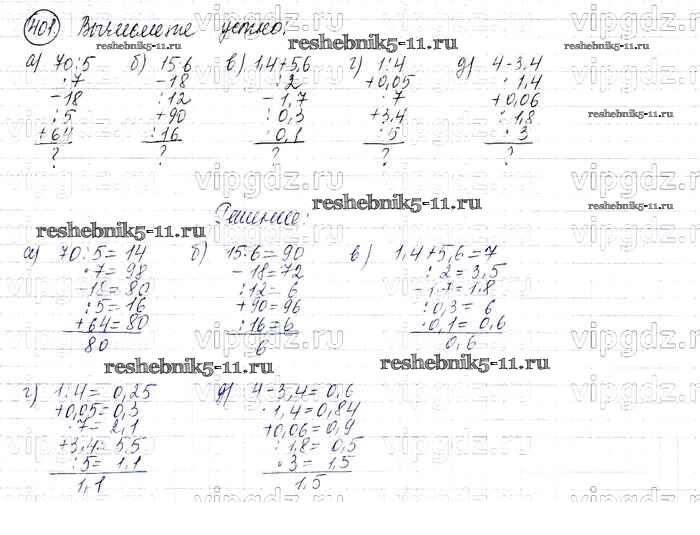 401. Вычислите устно:
а) 70:5 б) 15·6 в) 1,4+5,6 г) 1:4 д) 4-3,4
·7 -18 :2 +0,05 ·1,4
-18 :12 -1,7 ·7 +0,06
:5 +90 :0,3 +3,4 :1,8
+64 :16 ·0,1 :5 ·3
? ? ? ? ?
Решение:
а) 70:5=14 б) 15·6=90 в) 1,4+5,6=7
·7=98 -18=72 :2=3,5
-18=80 :12=6 -1,7=1,8
:5=16 +90=96 :0,3=6
+64=80 :16=6 ·0,1=0,6
80 6 0,6
г) 1:4=0,25 д) 4-3,4=0,6
+0,05=0,3 ·1,4=0,84
·7=2,1 +0,06=0,9
+3,4=5,5 :1,8=0,5
:5=1,1 ·3=1,5
1,1 1,5
reshebnik5-11.ru
vipgdz.ru